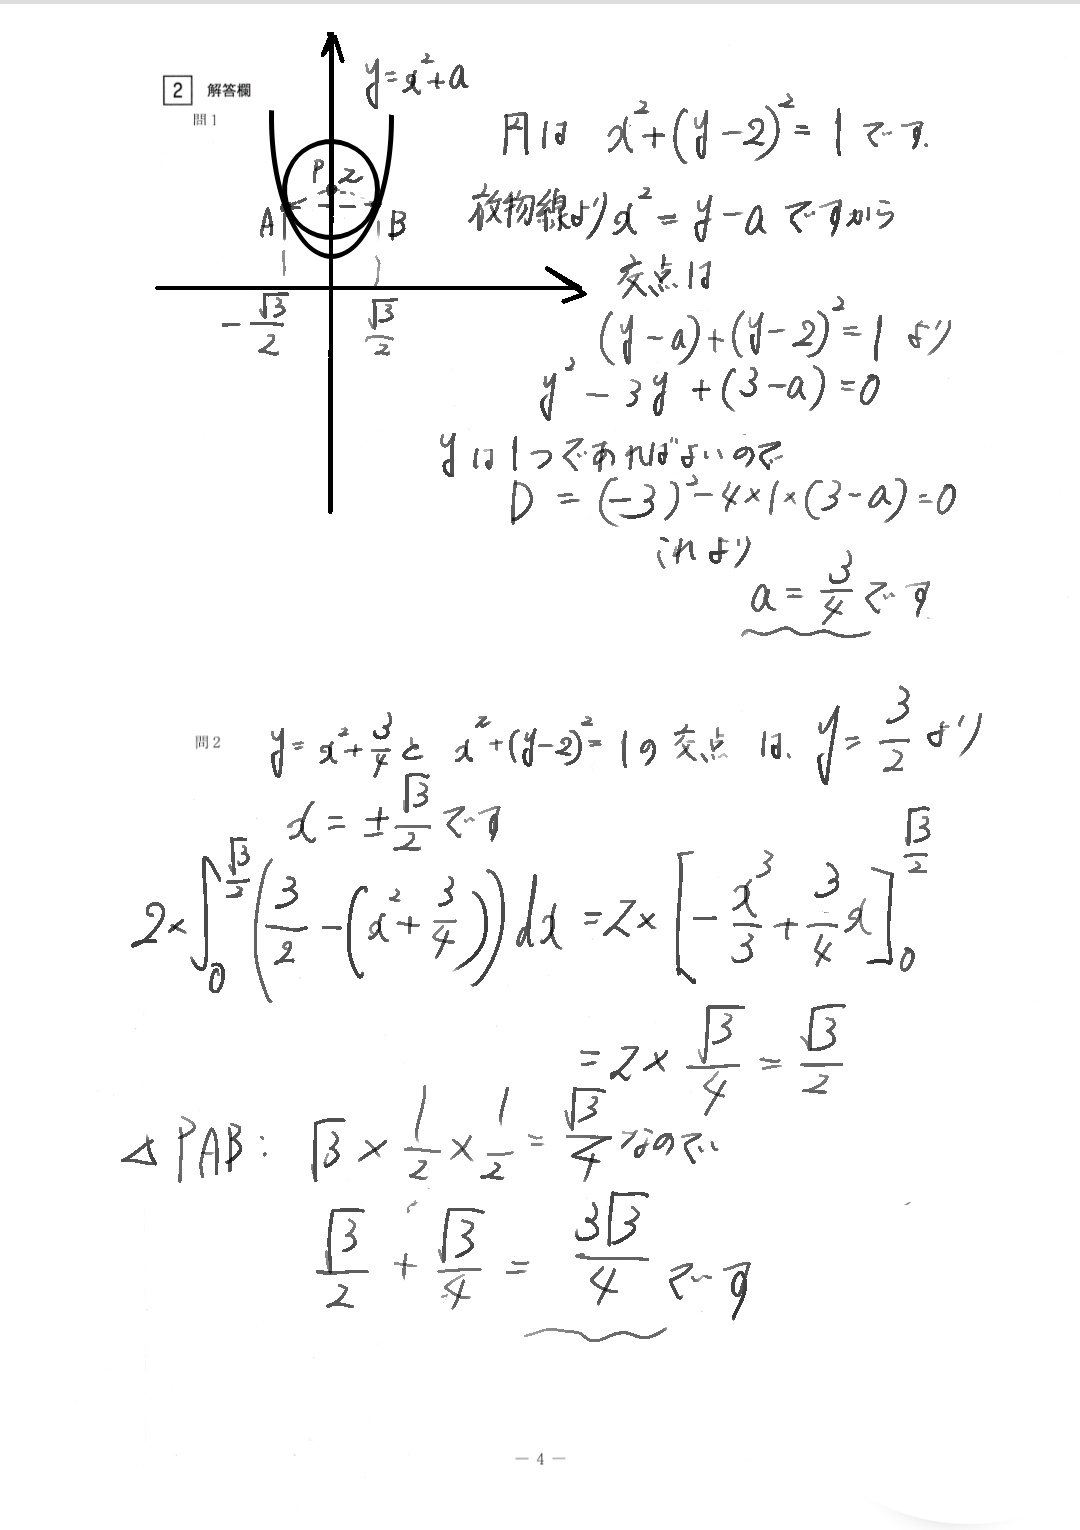 2 解答欄
問1
y=x²+a
P 2
A B
-√3/2 √3/2
円は x²+(y-2)²=1です.
放物線よりx²=y-aですから
交点は
(y-a)+(y-2)²=1 より
y²-3y+(3-a)=0
yは1つであればよいので
D=(-3)²-4×1×(3-a)=0
これより
a=3/4です
問2 y=x²+3/4と x²+(y-2)²=1の交点 は、y=3/2より
x=±√3/2です
2×∫₀^(√3/2)(3/2-(x²+3/4))dx=2×[-x³/3+3/4x]₀^(√3/2)
=2×√3/4=√3/2
△PAB: √3×1/2×1/2=√3/4なので、
√3/2+√3/4=3√3/4です
— 4 —